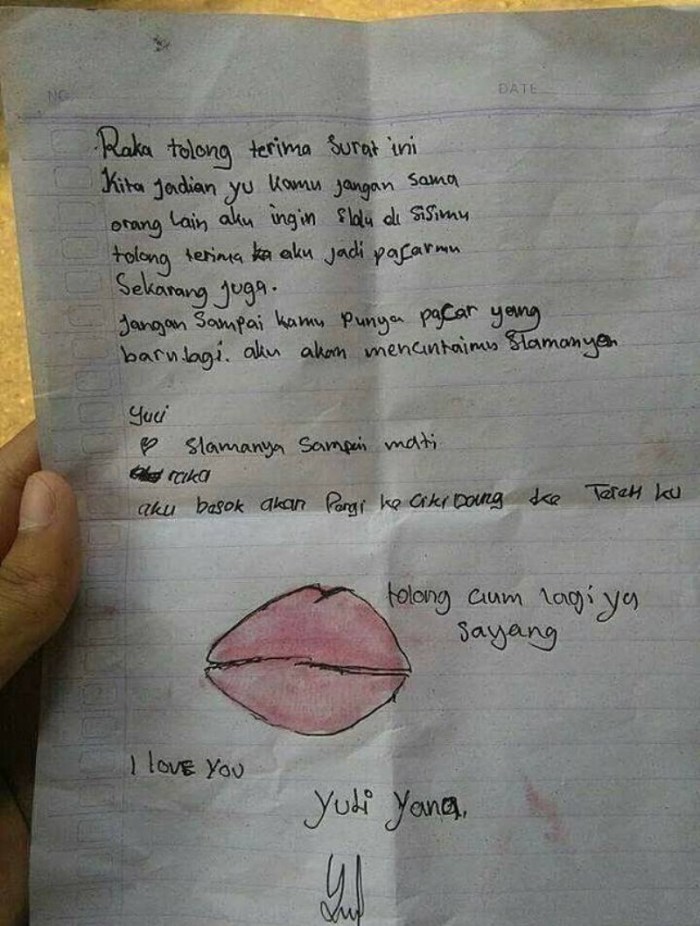 NO
DATE
Raka tolong terima surat ini
Kita jadian yu kamu jangan sama
orang lain aku ingin slalu di sisimu
tolong terima aku jadi pacarmu
Sekarang juga.
jangan sampai kamu punya pacar yang
baru lagi. aku akan mencintaimu slamanya
yuli
♥ slamanya sampai mati
raka
aku besok akan Pergi ke cikidang ke Teteh ku
tolong cium lagi ya
sayang
I love You
Yuli Yana.